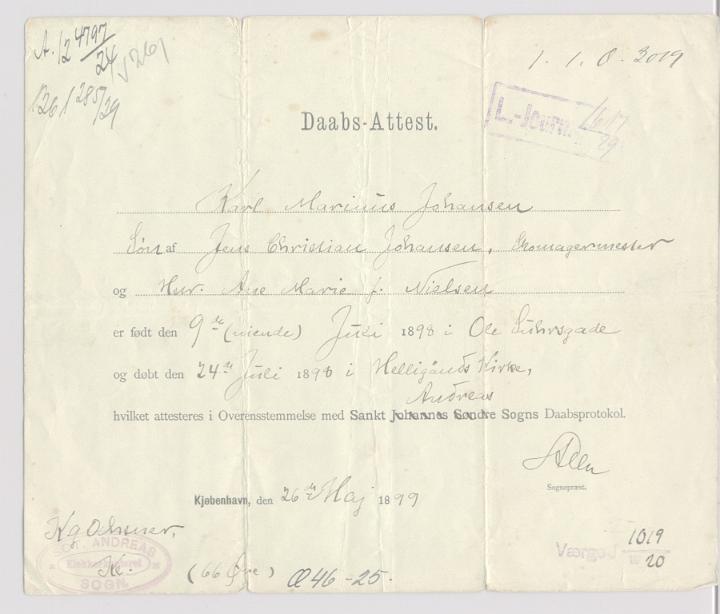 A. 12 4797/24
126 1 285/29
1. 1. 0. 3019
L.-Journ. 
Daabs-Attest.
Karl Marinus Johansen
Søn af Jens Christian Johansen, Skomagermester
og Hur. Ane Marie f. Nielsen
er født den 9de (niende) Juli 1898 i Ole Suhrsgade
og døbt den 24de Juli 1898 i Helligånds Kirke,
Andreas
hvilket attesteres i Overensstemmelse med Sankt Johannes Søndre Sogns Daabsprotokol.
Sognepræst.
Kjøbenhavn, den 26de Maj 1899
SCT. ANDREAS
SOGN.
K.
(66 Øre) Œ46-25.
Værge J 1019/20